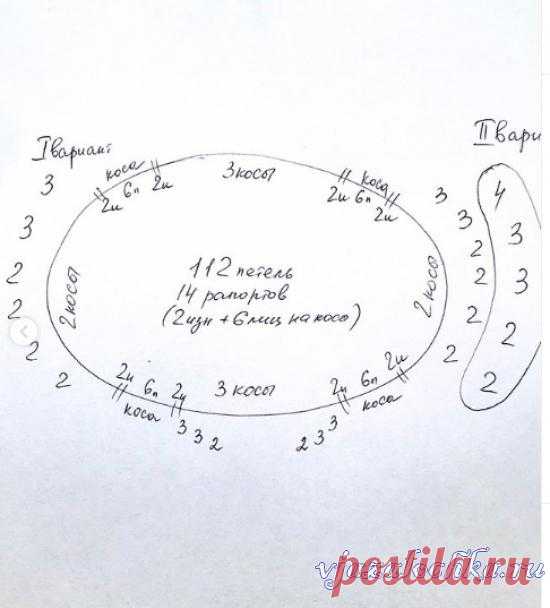 I вариант
II вари
коса
3 косы
коса
2и 6п 2и
2и 6п 2и
3
3
2
2
2
2
2 косы
112 петель
14 рапортов
(2изн + 6 лиц на косо)
2 косы
3
3
2
2
2
2
4
3
3
2
2
2и 6п 2и
коса
3 косы
2и 6п 2и
коса
3 3 2
2 3 3
postila.ru